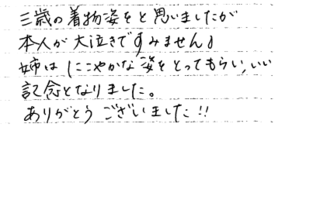 三歳の着物姿をと思いましたが
本人が大泣きですみません。
姉はにこやかな姿をとってもらい、いい
記念となりました。
ありがとうございました!!